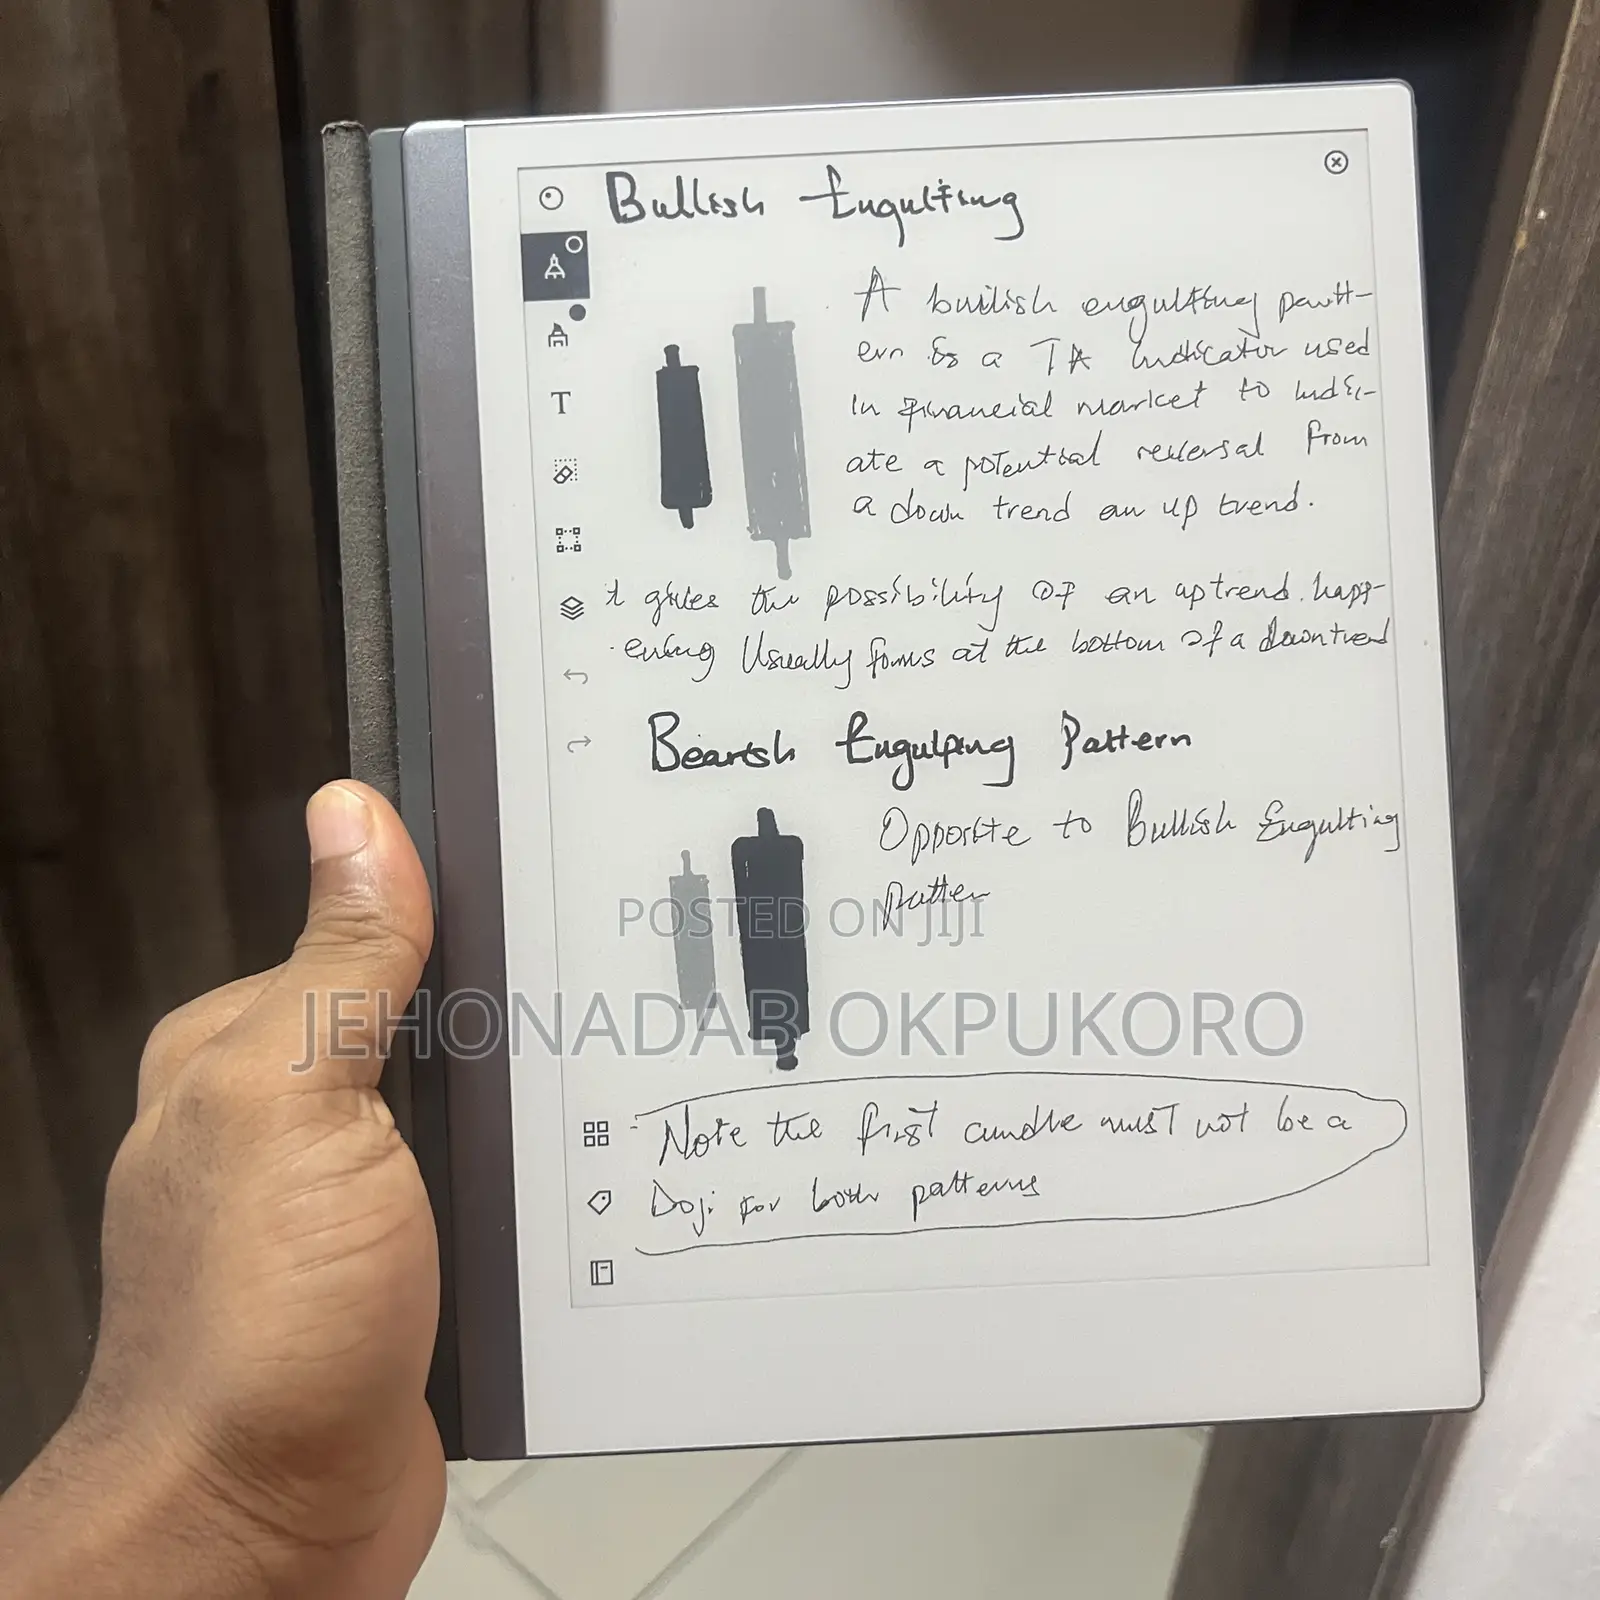 Bullish Engulfing
A bullish engulfing patt-
ern is a TA indicator used
in financial market to indic-
ate a potential reversal from
a down trend an up trend.
it gives the possibility of an uptrend happ-
ening Usually forms at the bottom of a downtrend
Bearish Engulfing Pattern
Opposite to Bullish Engulfing
patter
POSTED ON JIJI
JEHONADAB OKPUKORO
Note the first candle must not be a
Doji for both patterns
T